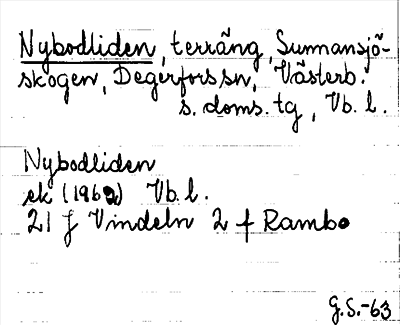 Nybodliden, terräng, Sunnansjö-
skogen, Degerfors sn, Västerb.
s. doms. tg, Vb. l.
Nybodliden
ek (1962) Vb. l.
21 J Vindeln 2 f Rambo
G.S.-63